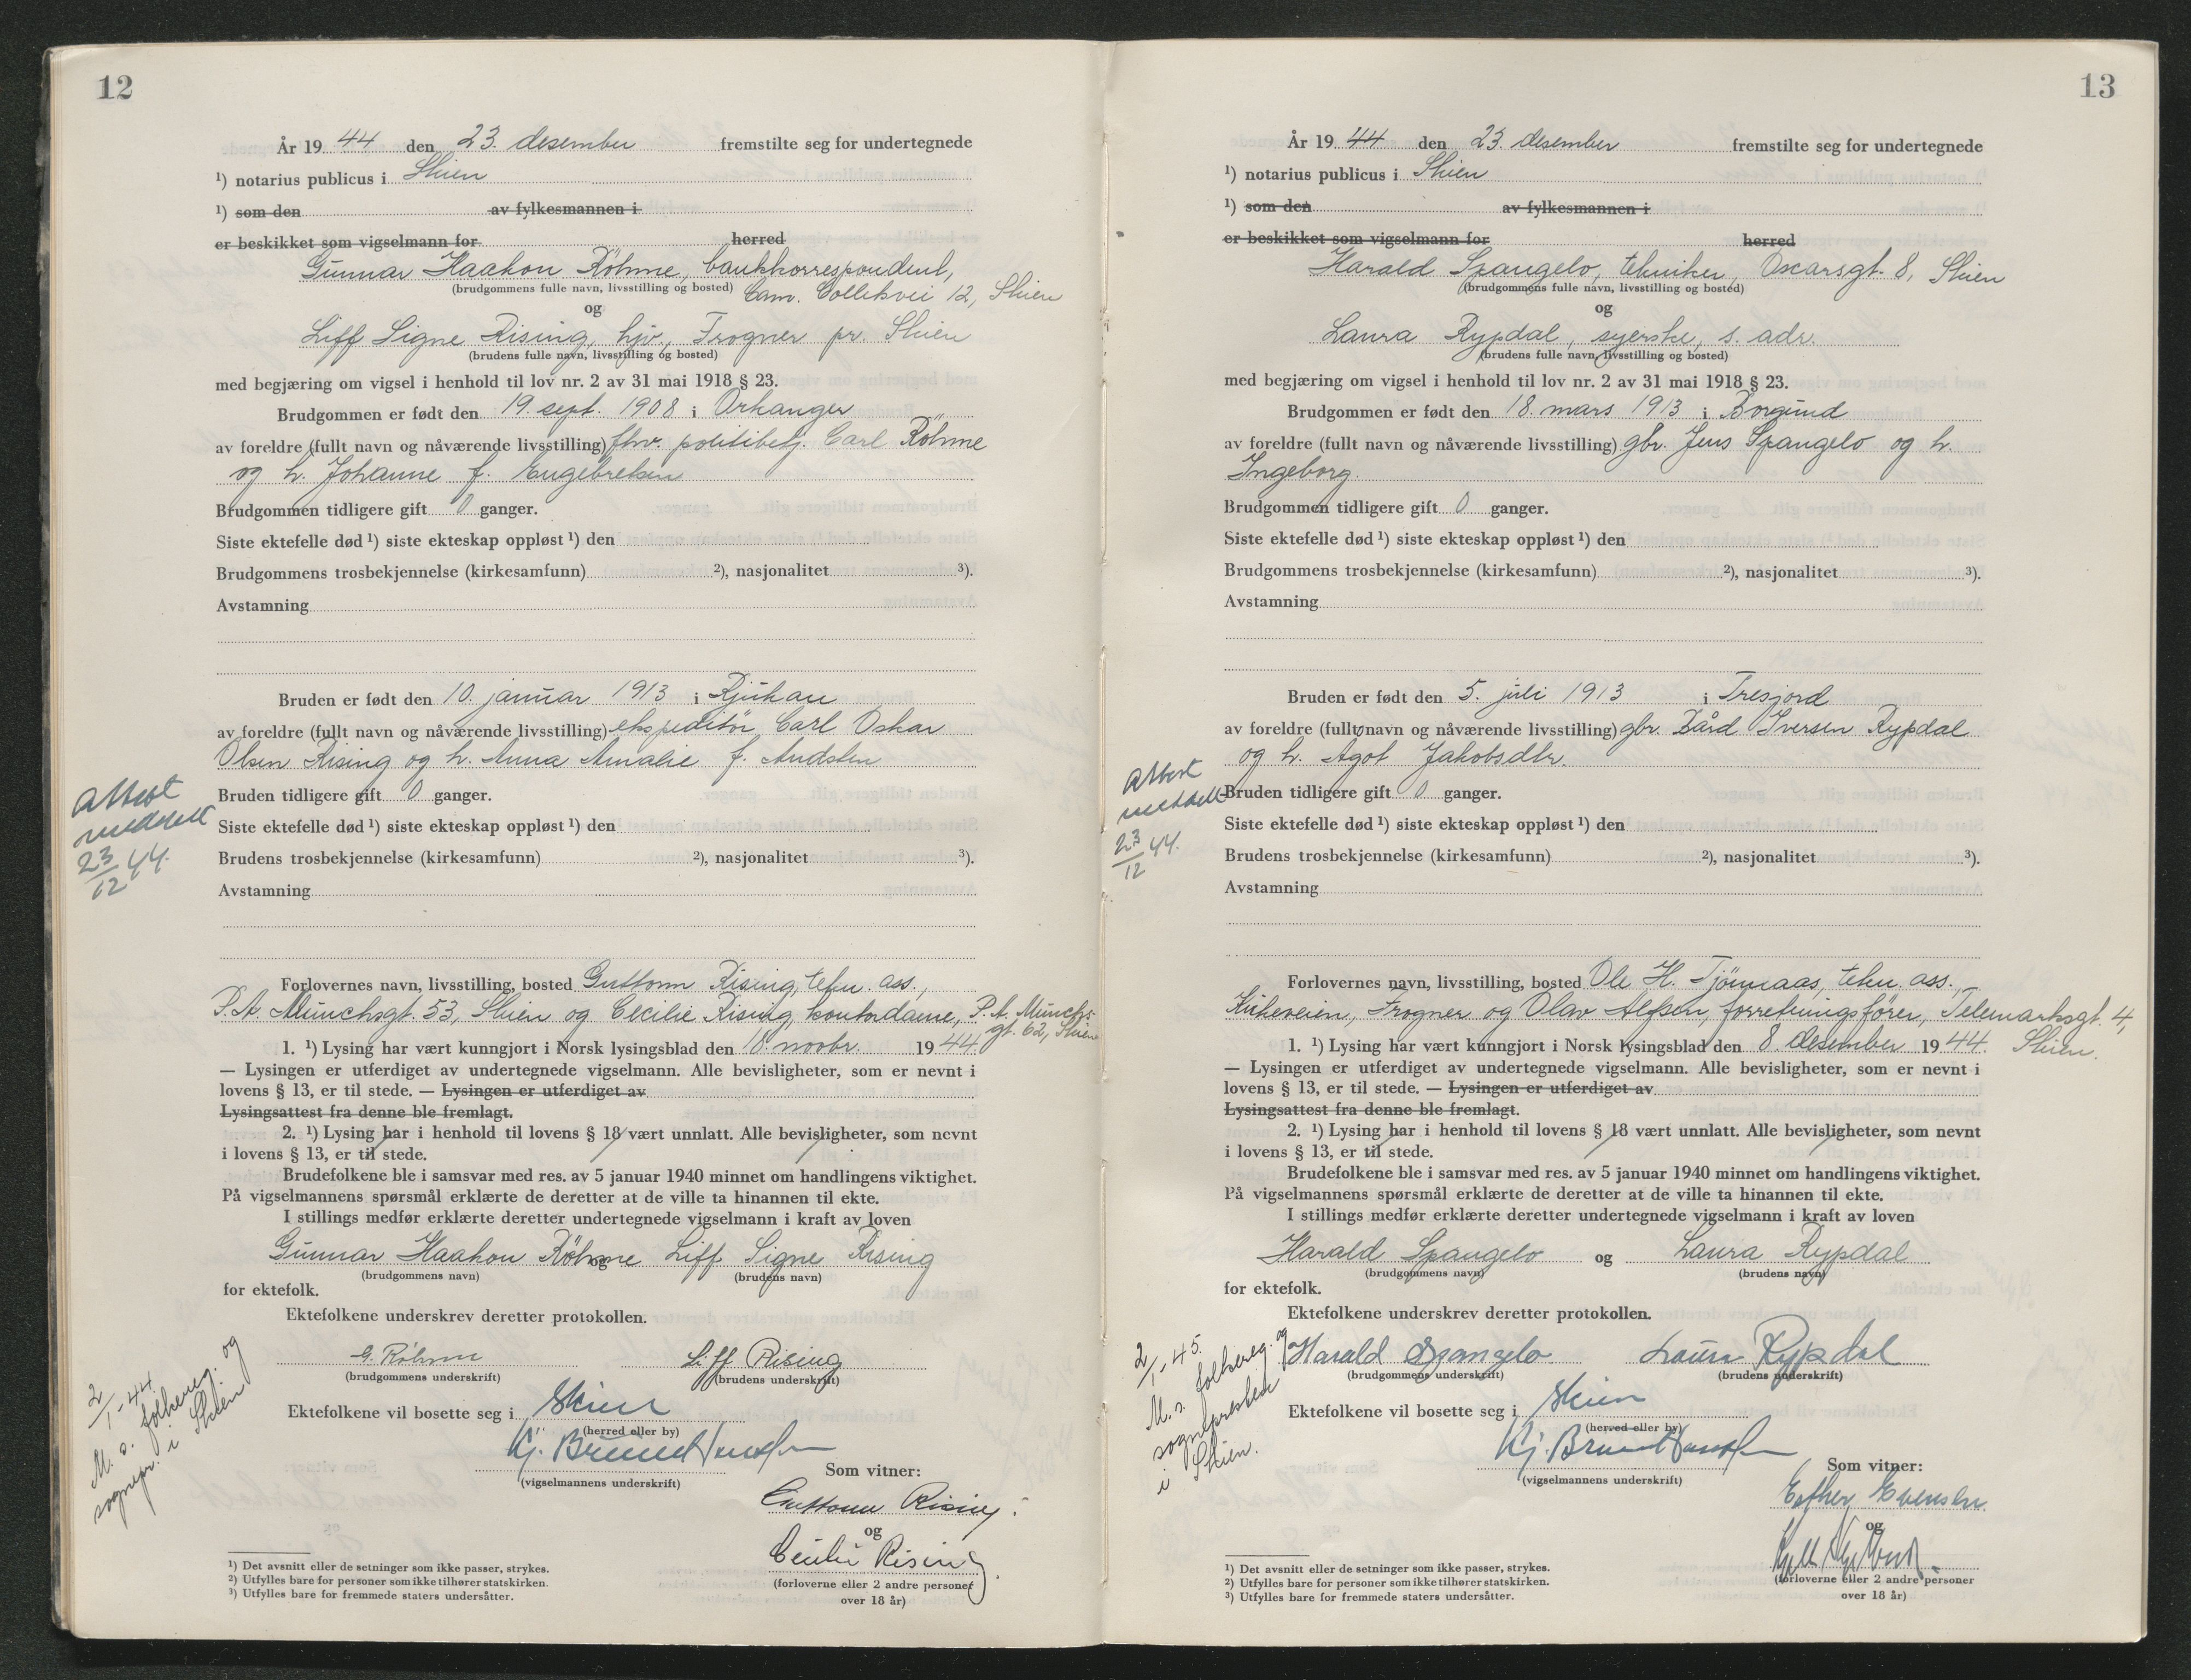 12
År 1944 den 23. desember fremstilte seg for undertegnede
¹) notarius publicus i Skien
¹) som den av fylkesmannen i
er beskikket som vigselmann for herred
Gunnar Haakon Röhme, bankkorrespondent,
(brudgommens fulle navn, livsstilling og bosted) Cam. Colletsvei 12, Skien
og
Liff Signe Rising, hjv., Frogner pr. Skien
(brudens fulle navn, livsstilling og bosted)
med begjæring om vigsel i henhold til lov nr. 2 av 31 mai 1918 § 23.
Brudgommen er født den 19. sept. 1908 i Orkanger
av foreldre (fullt navn og nåværende livsstilling) fhv. politibetj. Carl Röhme
og h. Johanne f. Engebretsen
Brudgommen tidligere gift 0 ganger.
Siste ektefelle død ¹) siste ekteskap oppløst ¹) den
Brudgommens trosbekjennelse (kirkesamfunn) ²), nasjonalitet ³).
Avstamning
Bruden er født den 10. januar 1913 i Rjukan
av foreldre (fullt navn og nåværende livsstilling) ekspeditör Carl Oskar
Olsen Rising og h. Anna Amalie f.
Attest
meddelt
23/12 44.
Bruden tidligere gift 0 ganger.
Siste ektefelle død ¹) siste ekteskap oppløst ¹) den
Brudens trosbekjennelse (kirkesamfunn) ²), nasjonalitet ³).
Avstamning
Forlovernes navn, livsstilling, bosted Guttorm Rising, tekn. ass.,
P. A. Munchsgt. 53, Skien og Cecilie Rising, kontordame, P. A. Munchs-
gt. 62, Skien
1. ¹) Lysing har vært kunngjort i Norsk lysingsblad den 18. novbr. 1944.
— Lysingen er utferdiget av undertegnede vigselmann. Alle bevisligheter, som er nevnt i
lovens § 13, er til stede. — Lysingen er utferdiget av
Lysingsattest fra denne ble fremlagt.
2. ¹) Lysing har i henhold til lovens § 18 vært unnlatt. Alle bevisligheter, som nevnt
i lovens § 13, er til stede.
Brudefolkene ble i samsvar med res. av 5 januar 1940 minnet om handlingens viktighet.
På vigselmannens spørsmål erklærte de deretter at de ville ta hinannen til ekte.
I stillings medfør erklærte deretter undertegnede vigselmann i kraft av loven
Gunnar Haakon Röhme og Liff Signe Rising
(brudgommens navn) (brudens navn)
for ektefolk.
Ektefolkene underskrev deretter protokollen.
G. Röhme Liff Rising
(brudgommens underskrift) (brudens underskrift)
2/1-44.
M. s. folkereg. og
sognepr. i Skien
Ektefolkene vil bosette seg i Skien
(herred eller by)
Kj.
(vigselmannens underskrift)
Som vitner:
Guttorm Rising.
og
Cecilie Rising
(forloverne eller 2 andre personer
over 18 år)
¹) Det avsnitt eller de setninger som ikke passer, strykes.
²) Utfylles bare for personer som ikke tilhører statskirken.
³) Utfylles bare for fremmede staters undersåtter.
13
År 1944 den 23. desember fremstilte seg for undertegnede
¹) notarius publicus i Skien
¹) som den av fylkesmannen i
er beskikket som vigselmann for herred
Harald Spangelo, tekniker, Oscarsgt. 8, Skien
(brudgommens fulle navn, livsstilling og bosted)
og
Laura Rypdal, syerske, s. adr.
(brudens fulle navn, livsstilling og bosted)
med begjæring om vigsel i henhold til lov nr. 2 av 31 mai 1918 § 23.
Brudgommen er født den 18. mars 1913 i Borgund
av foreldre (fullt navn og nåværende livsstilling) gbr. Jens Spangelo og h.
Ingeborg.
Brudgommen tidligere gift 0 ganger.
Siste ektefelle død ¹) siste ekteskap oppløst ¹) den
Brudgommens trosbekjennelse (kirkesamfunn) ²), nasjonalitet ³).
Avstamning
Bruden er født den 5. juli 1913 i Tresjord
av foreldre (fullt navn og nåværende livsstilling) gbr. Bård Iversen Rypdal
og h. Agot Jakobsdtr.
Attest
meddelt
23/12 44.
Bruden tidligere gift 0 ganger.
Siste ektefelle død ¹) siste ekteskap oppløst ¹) den
Brudens trosbekjennelse (kirkesamfunn) ²), nasjonalitet ³).
Avstamning
Forlovernes navn, livsstilling, bosted Ole H. Tjömaas, tekn. ass.,
Kirkeveien, Frogner og Olav Alfsen, forretningsförer, Telemarksgt. 4,
Skien.
1. ¹) Lysing har vært kunngjort i Norsk lysingsblad den 8. desember 1944.
— Lysingen er utferdiget av undertegnede vigselmann. Alle bevisligheter, som er nevnt i
lovens § 13, er til stede. — Lysingen er utferdiget av
Lysingsattest fra denne ble fremlagt.
2. ¹) Lysing har i henhold til lovens § 18 vært unnlatt. Alle bevisligheter, som nevnt
i lovens § 13, er til stede.
Brudefolkene ble i samsvar med res. av 5 januar 1940 minnet om handlingens viktighet.
På vigselmannens spørsmål erklærte de deretter at de ville ta hinannen til ekte.
I stillings medfør erklærte deretter undertegnede vigselmann i kraft av loven
Harald Spangelo og Laura Rypdal
(brudgommens navn) (brudens navn)
for ektefolk.
Ektefolkene underskrev deretter protokollen.
Harald Spangelo Laura Rypdal
(brudgommens underskrift) (brudens underskrift)
2/1-45.
M. s. folkereg. og
sogneprest
i Skien.
Ektefolkene vil bosette seg i Skien
(herred eller by)
Kj.
(vigselmannens underskrift)
Som vitner:
Esther Evensen.
og
(forloverne eller 2 andre personer
over 18 år)
¹) Det avsnitt eller de setninger som ikke passer, strykes.
²) Utfylles bare for personer som ikke tilhører statskirken.
³) Utfylles bare for fremmede staters undersåtter.